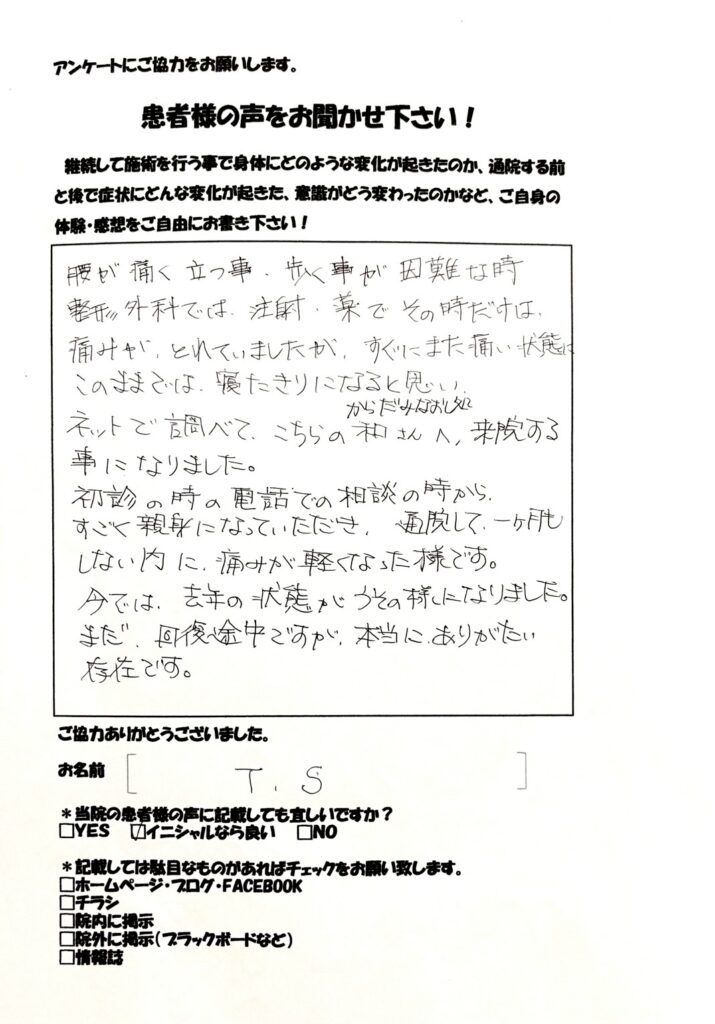 アンケートにご協力をお願いします。
患者様の声をお聞かせ下さい！
継続して施術を行う事で身体にどのような変化が起きたのか、通院する前
と後で症状にどんな変化が起きた、意識がどう変わったのかなど、ご自身の
体験・感想をご自由にお書き下さい！
腰が痛く立つ事、歩く事が困難な時
整形外科では、注射、薬でその時だけは、
痛みが、とれていましたが、すぐにまた痛い状態に
このままでは、寝たきりになると思い、
からだみなおし処
ネットで調べて、こちらの和さんへ、来院する
事になりました。
初診の時の電話での相談の時から、
すごく親身になっていただき、通院して、一ヶ月も
しない内に、痛みが軽くなった様です。
今では、去年の状態がうその様になりました。
まだ、回復途中ですが、本当に、ありがたい
存在です。
ご協力ありがとうございました。
お名前 T.S
＊当院の患者様の声に記載しても宜しいですか？
□YES ☑イニシャルなら良い □NO
＊記載しては駄目なものがあればチェックをお願い致します。
□ホームページ・ブログ・FACEBOOK
□チラシ
□院内に掲示
□院外に掲示（ブラックボードなど）
□情報誌